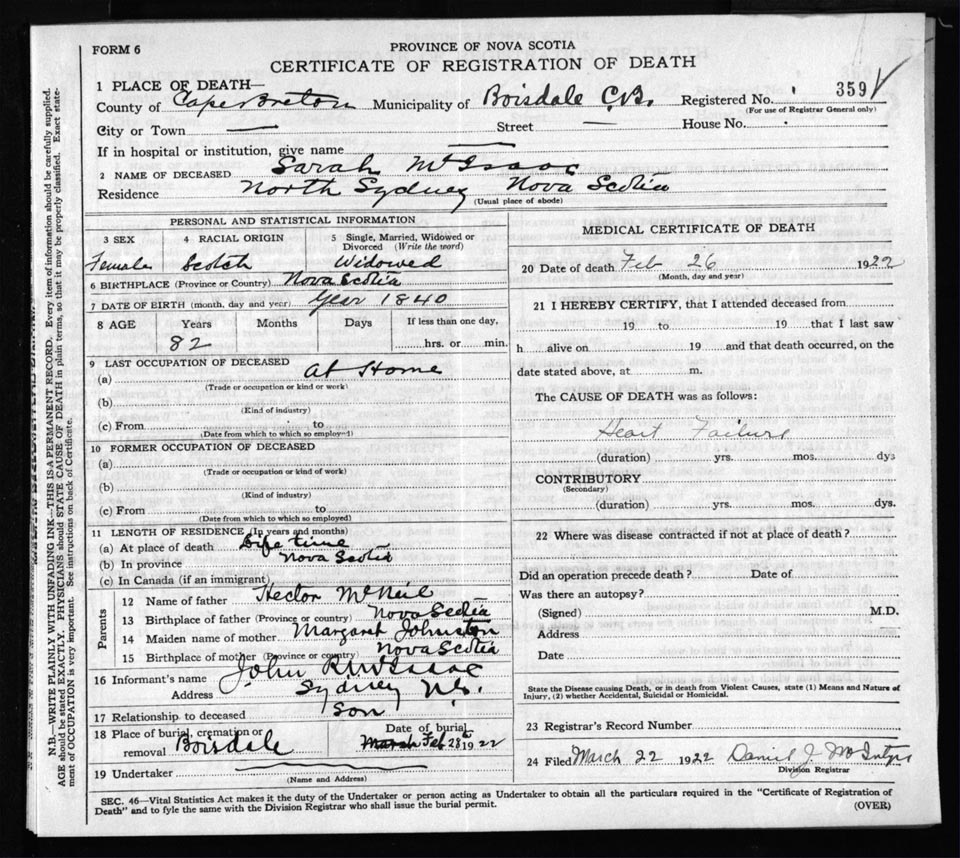 FORM 6
PROVINCE OF NOVA SCOTIA
CERTIFICATE OF REGISTRATION OF DEATH
1 PLACE OF DEATH—
County of Cape Breton Municipality of Boisdale C.B. Registered No. 359
(For use of Registrar General only)
City or Town — Street — House No.
If in hospital or institution, give name —
2 NAME OF DECEASED Sarah McIsaac
Residence North Sydney Nova Scotia
(Usual place of abode)
PERSONAL AND STATISTICAL INFORMATION
3 SEX 4 RACIAL ORIGIN 5 Single, Married, Widowed or Divorced (Write the word)
Female Scotch Widowed
6 BIRTHPLACE (Province or Country) Nova Scotia
7 DATE OF BIRTH (month, day and year) Year 1840
8 AGE Years Months Days If less than one day,
82 hrs. or min.
9 LAST OCCUPATION OF DECEASED
(a) At Home
(Trade or occupation or kind of work)
(b)
(Kind of industry)
(c) From to
(Date from which to which so employed)
10 FORMER OCCUPATION OF DECEASED
(a)
(Trade or occupation or kind of work)
(b)
(Kind of industry)
(c) From to
(Date from which to which so employed)
11 LENGTH OF RESIDENCE (In years and months)
(a) At place of death Life time
(b) In province Nova Scotia
(c) In Canada (if an immigrant)
Parents
12 Name of father Hector McNeil
13 Birthplace of father (Province or country) Nova Scotia
14 Maiden name of mother Margaret Johnston
15 Birthplace of mother (Province or country) Nova Scotia
16 Informant's name John R. McIsaac
Address Sydney N.S.
17 Relationship to deceased Son
18 Place of burial, cremation or removal Boisdale
Date of burial
March Feb 28 1922
19 Undertaker
(Name and Address)
MEDICAL CERTIFICATE OF DEATH
20 Date of death Feb 26 1922
(Month, day and year)
21 I HEREBY CERTIFY, that I attended deceased from
19 to 19 that I last saw
h alive on 19 and that death occurred, on the
date stated above, at m.
The CAUSE OF DEATH was as follows:
Heart Failure
(duration) yrs. mos. dys
CONTRIBUTORY
(Secondary)
(duration) yrs. mos. dys.
22 Where was disease contracted if not at place of death?
Did an operation precede death? Date of
Was there an autopsy?
(Signed) M.D.
Address
Date
State the Disease causing Death, or in death from Violent Causes, state (1) Means and Nature of
Injury, (2) whether Accidental, Suicidal or Homicidal.
23 Registrar's Record Number
24 Filed March 22 1922 Daniel J. McIntyre
Division Registrar
SEC. 46—Vital Statistics Act makes it the duty of the Undertaker or person acting as Undertaker to obtain all the particulars required in the "Certificate of Registration of
Death" and to fyle the same with the Division Registrar who shall issue the burial permit.
(OVER)
N.B.—WRITE PLAINLY WITH UNFADING INK—THIS IS A PERMANENT RECORD. Every item of information should be carefully supplied.
AGE should be stated EXACTLY. PHYSICIANS should STATE CAUSE OF DEATH in plain terms, so that it may be properly classified. Exact state-
ment of OCCUPATION is very important. See instructions on back of Certificate.